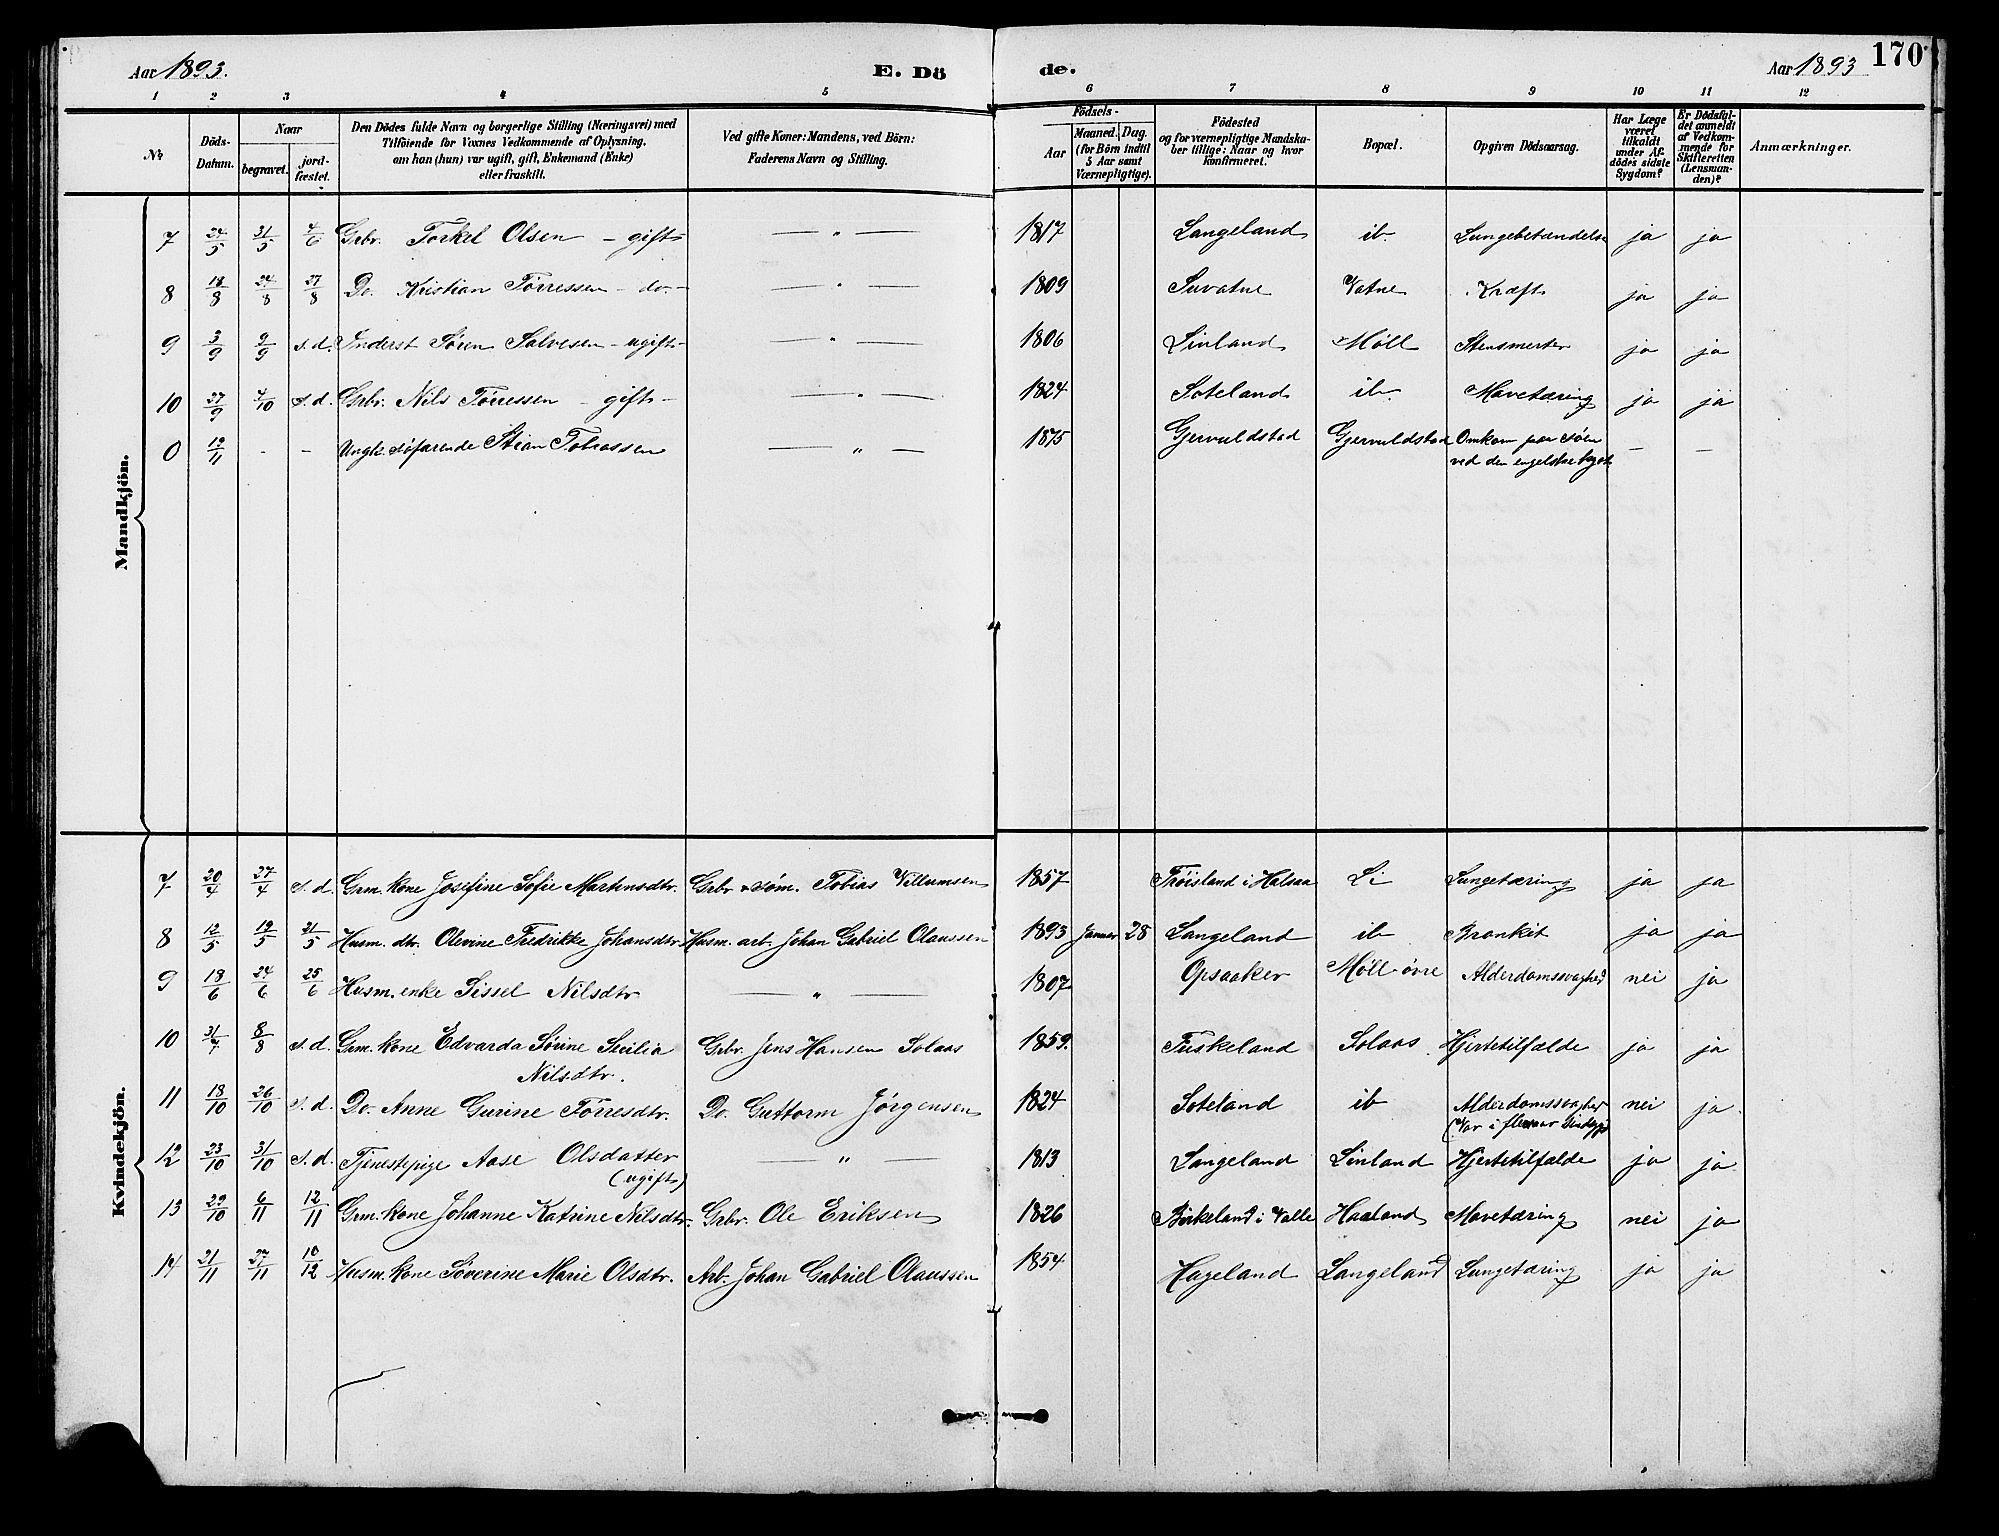 Aar 1893. E. Dö de. Aar 1893 170
1 2 3 4 5 6 7 8 9 10 11 12
No Döds-Datum. Naar begravet. jord-fæstet. Den Dödes fulde Navn og borgerlige Stilling (Næringsvei) med Tilföiende for Voxnes Vedkommende af Oplysning, om han (hun) var ugift, gift, Enkemand (Enke) eller fraskilt. Ved gifte Koner: Mandens, ved Börn: Faderens Navn og Stilling. Födsels- Aar Maaned. Dag. (for Börn indtil 5 Aar samt Værnepligtige). Födested og for værnepligtige Mandskaber tillige: Naar og hvor konfirmeret. Bopæl. Opgiven Dödsaarsag. Har Læge været tilkaldt under Afdödes sidste Sygdom? Er Dödsfaldet anmeldt af Vedkommende for Skifteretten (Lensmanden)? Anmærkninger.
Mandkjön.
7 24/5 31/5 4/6 Grbr. Torkel Olsen - gift - — " — 1817 Langeland ib. Lungebetændelse ja ja
8 18/8 24/8 27/8 Do. Kristian Tørressen - do. - — " — 1809 Suvatne Vatne Kræft ja ja
9 3/9 9/9 s.d. Inderst Søren Salvesen - ugift - — " — 1806 Linland Møll Stensmerter ja ja
10 27/9 4/10 s.d. Grbr. Nils Tørressen - gift - — " — 1824 Soteland ib. Mavetæring ja ja
0 19/11 - - Ungk. søfarende Stian Tobiassen — " — 1875 Gjervuldstad Gjervuldstad Omkom paa Søen — —
ved den engelske kyst
Kvindekjön.
7 20/4 27/4 s.d. Grm. kone Josefine Sofie Martinsdtr. Grbr. & søm. Tobias Villumsen 1857 Trøisland i Halsaa Li Lungetæring ja ja
8 12/5 19/5 21/5 Husm. dtr. Olevine Fredrikke Johansdtr. Husm. arb. Johan Gabriel Olaussen 1893 Januar 28 Langeland ib Bronkit ja ja
9 18/6 24/6 25/6 Husm. enke Sissel Nilsdtr — " — 1807 Opsaaker Møll øvre Alderdomssvaghed nei ja
10 31/7 8/8 s.d. Grm. kone Edvarda Sørine Secilia Grbr. Jens Hansen Solaas 1859. Fuskeland Solaas Hjertetilfælde ja ja
Nilsdtr.
11 18/10 26/10 s.d. Do. Anne Gurine Tørresdtr. Do. Guttorm Jørgensen 1824 Soteland ib Alderdomssvaghed nei ja
(Var i flere aar Sindssyg)
12 23/10 31/10 s.d. Tjenestepige Aase Olsdatter — " — 1813 Langeland Linland Hjertetilfælde ja ja
(ugift)
13 29/10 6/11 12/11 Grm. kone Johanne Katrine Nilsdtr. Grbr. Ole Eriksen 1826 Birkeland i Valle Haaland Mavetæring nei ja
14 21/11 27/11 10/12 Husm. kone Søverine Marie Olsdtr. Arb. Johan Gabriel Olaussen 1854 Hageland Langeland Lungetæring ja ja